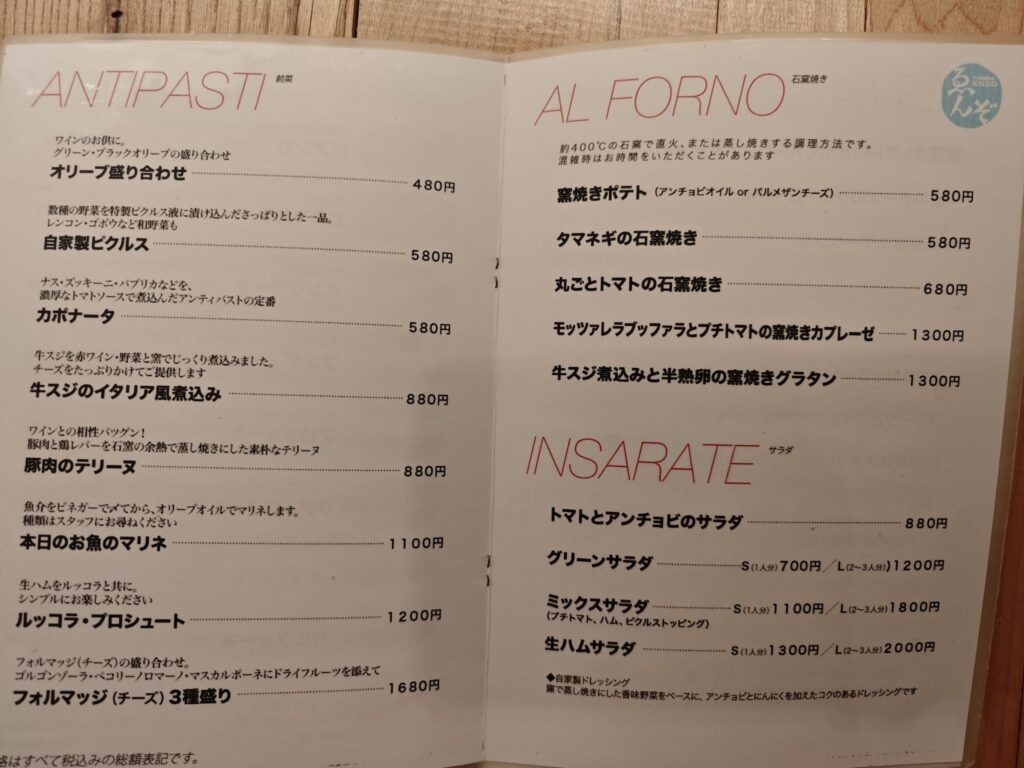 ANTIPASTI 前菜
ワインのお供に。
グリーン・ブラックオリーブの盛り合わせ
オリーブ盛り合わせ 480円
数種の野菜を特製ピクルス液に漬け込んださっぱりとした一品。
レンコン・ゴボウなど和野菜も
自家製ピクルス 580円
ナス・ズッキーニ・パプリカなどを、
濃厚なトマトソースで煮込んだアンティパストの定番
カポナータ 580円
牛スジを赤ワイン・野菜と窯でじっくり煮込みました。
チーズをたっぷりかけてご提供します
牛スジのイタリア風煮込み 880円
ワインとの相性バツグン！
豚肉と鶏レバーを石窯の余熱で蒸し焼きにした素朴なテリーヌ
豚肉のテリーヌ 880円
魚介をビネガーで〆てから、オリーブオイルでマリネします。
種類はスタッフにお尋ねください
本日のお魚のマリネ 1100円
生ハムをルッコラと共に。
シンプルにお楽しみください
ルッコラ・プロシュート 1200円
フォルマッジ（チーズ）の盛り合わせ。
ゴルゴンゾーラ・ペコリーノロマーノ・マスカルポーネにドライフルーツを添えて
フォルマッジ（チーズ）3種盛り 1680円
格はすべて税込みの総額表記です。
AL FORNO 石窯焼き
ゑんぞ
ENZO
約400℃の石窯で直火、または蒸し焼きする調理方法です。
混雑時はお時間をいただくことがあります
窯焼きポテト（アンチョビオイル or パルメザンチーズ） 580円
タマネギの石窯焼き 580円
丸ごとトマトの石窯焼き 680円
モッツァレラブッファラとプチトマトの窯焼きカプレーゼ 1300円
牛スジ煮込みと半熟卵の窯焼きグラタン 1300円
INSARATE サラダ
トマトとアンチョビのサラダ 880円
グリーンサラダ S（1人分）700円／L（2〜3人分）)1200円
ミックスサラダ S（1人分）1100円／L（2〜3人分）1800円
（プチトマト、ハム、ピクルストッピング）
生ハムサラダ S（1人分）1300円／L（2〜3人分）2000円
◆自家製ドレッシング
窯で蒸し焼きにした香味野菜をベースに、アンチョビとにんにくを加えたコクのあるドレッシングです